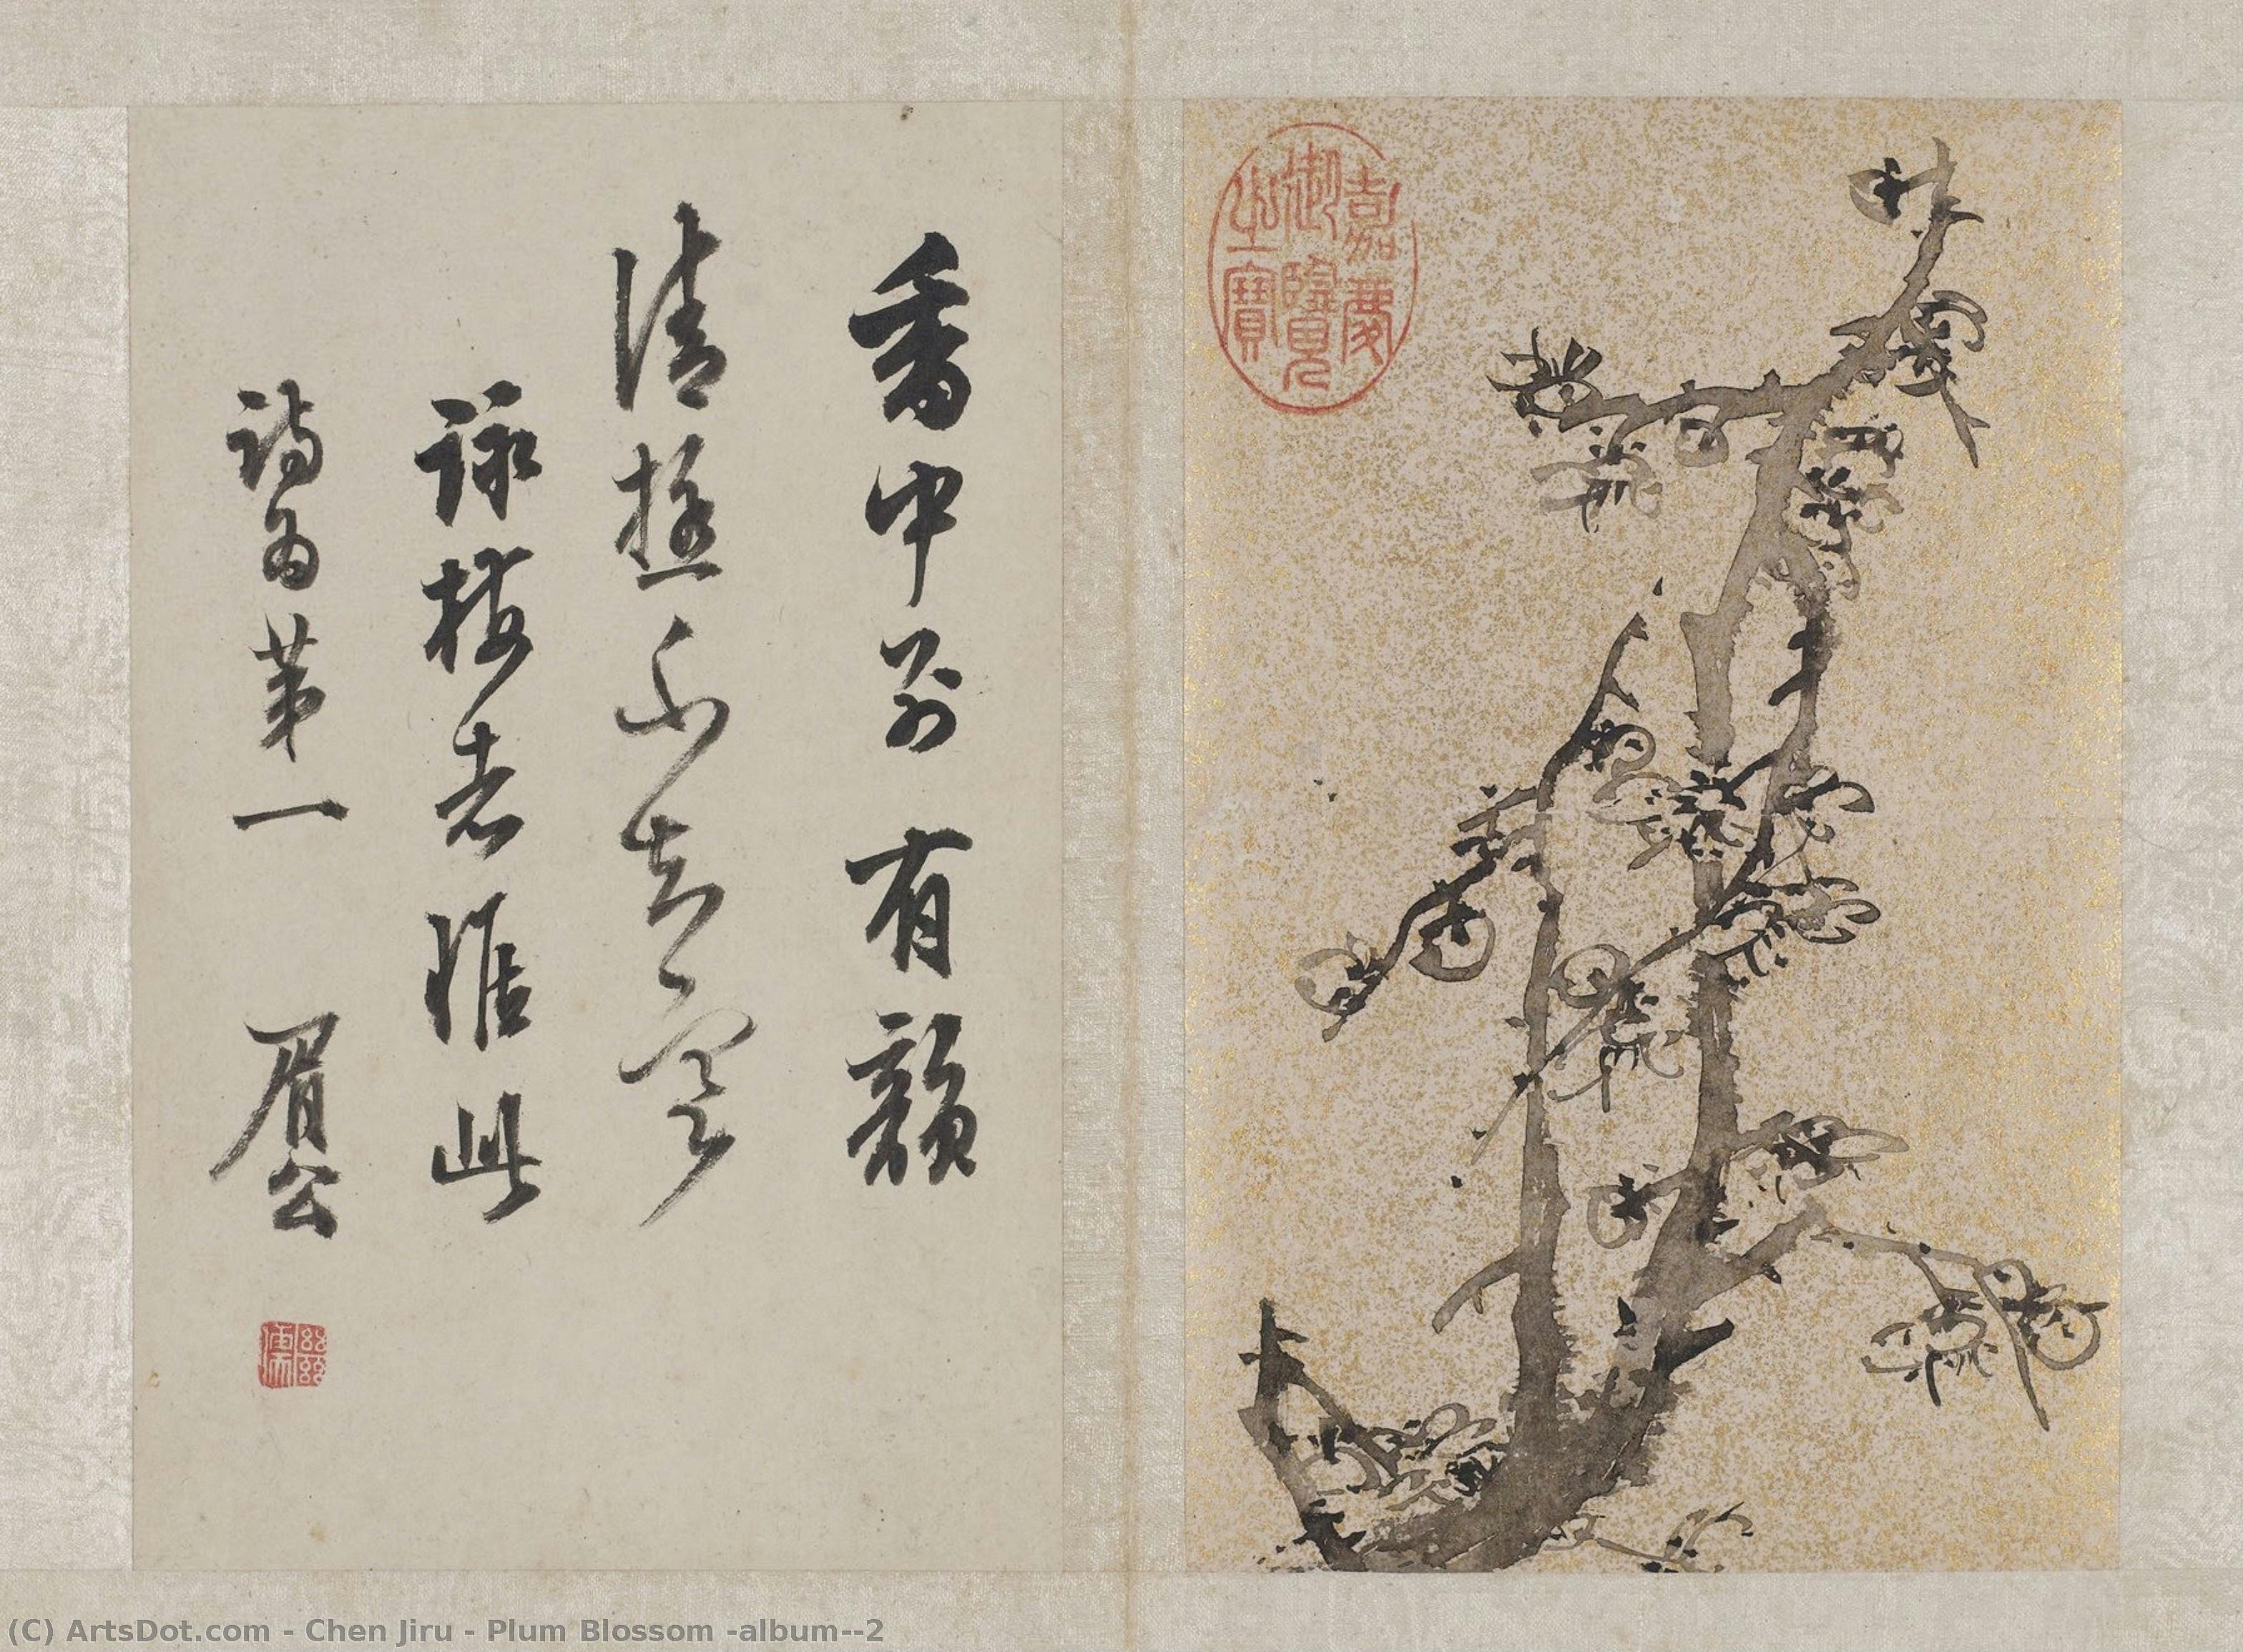 嘉慶
御覽
之寶
香中别有韻
清極不知寒
詠梅者推此
詩為第一 眉公
(C) ArtsDot.com - Chen Jiru - Plum Blossom -album--2